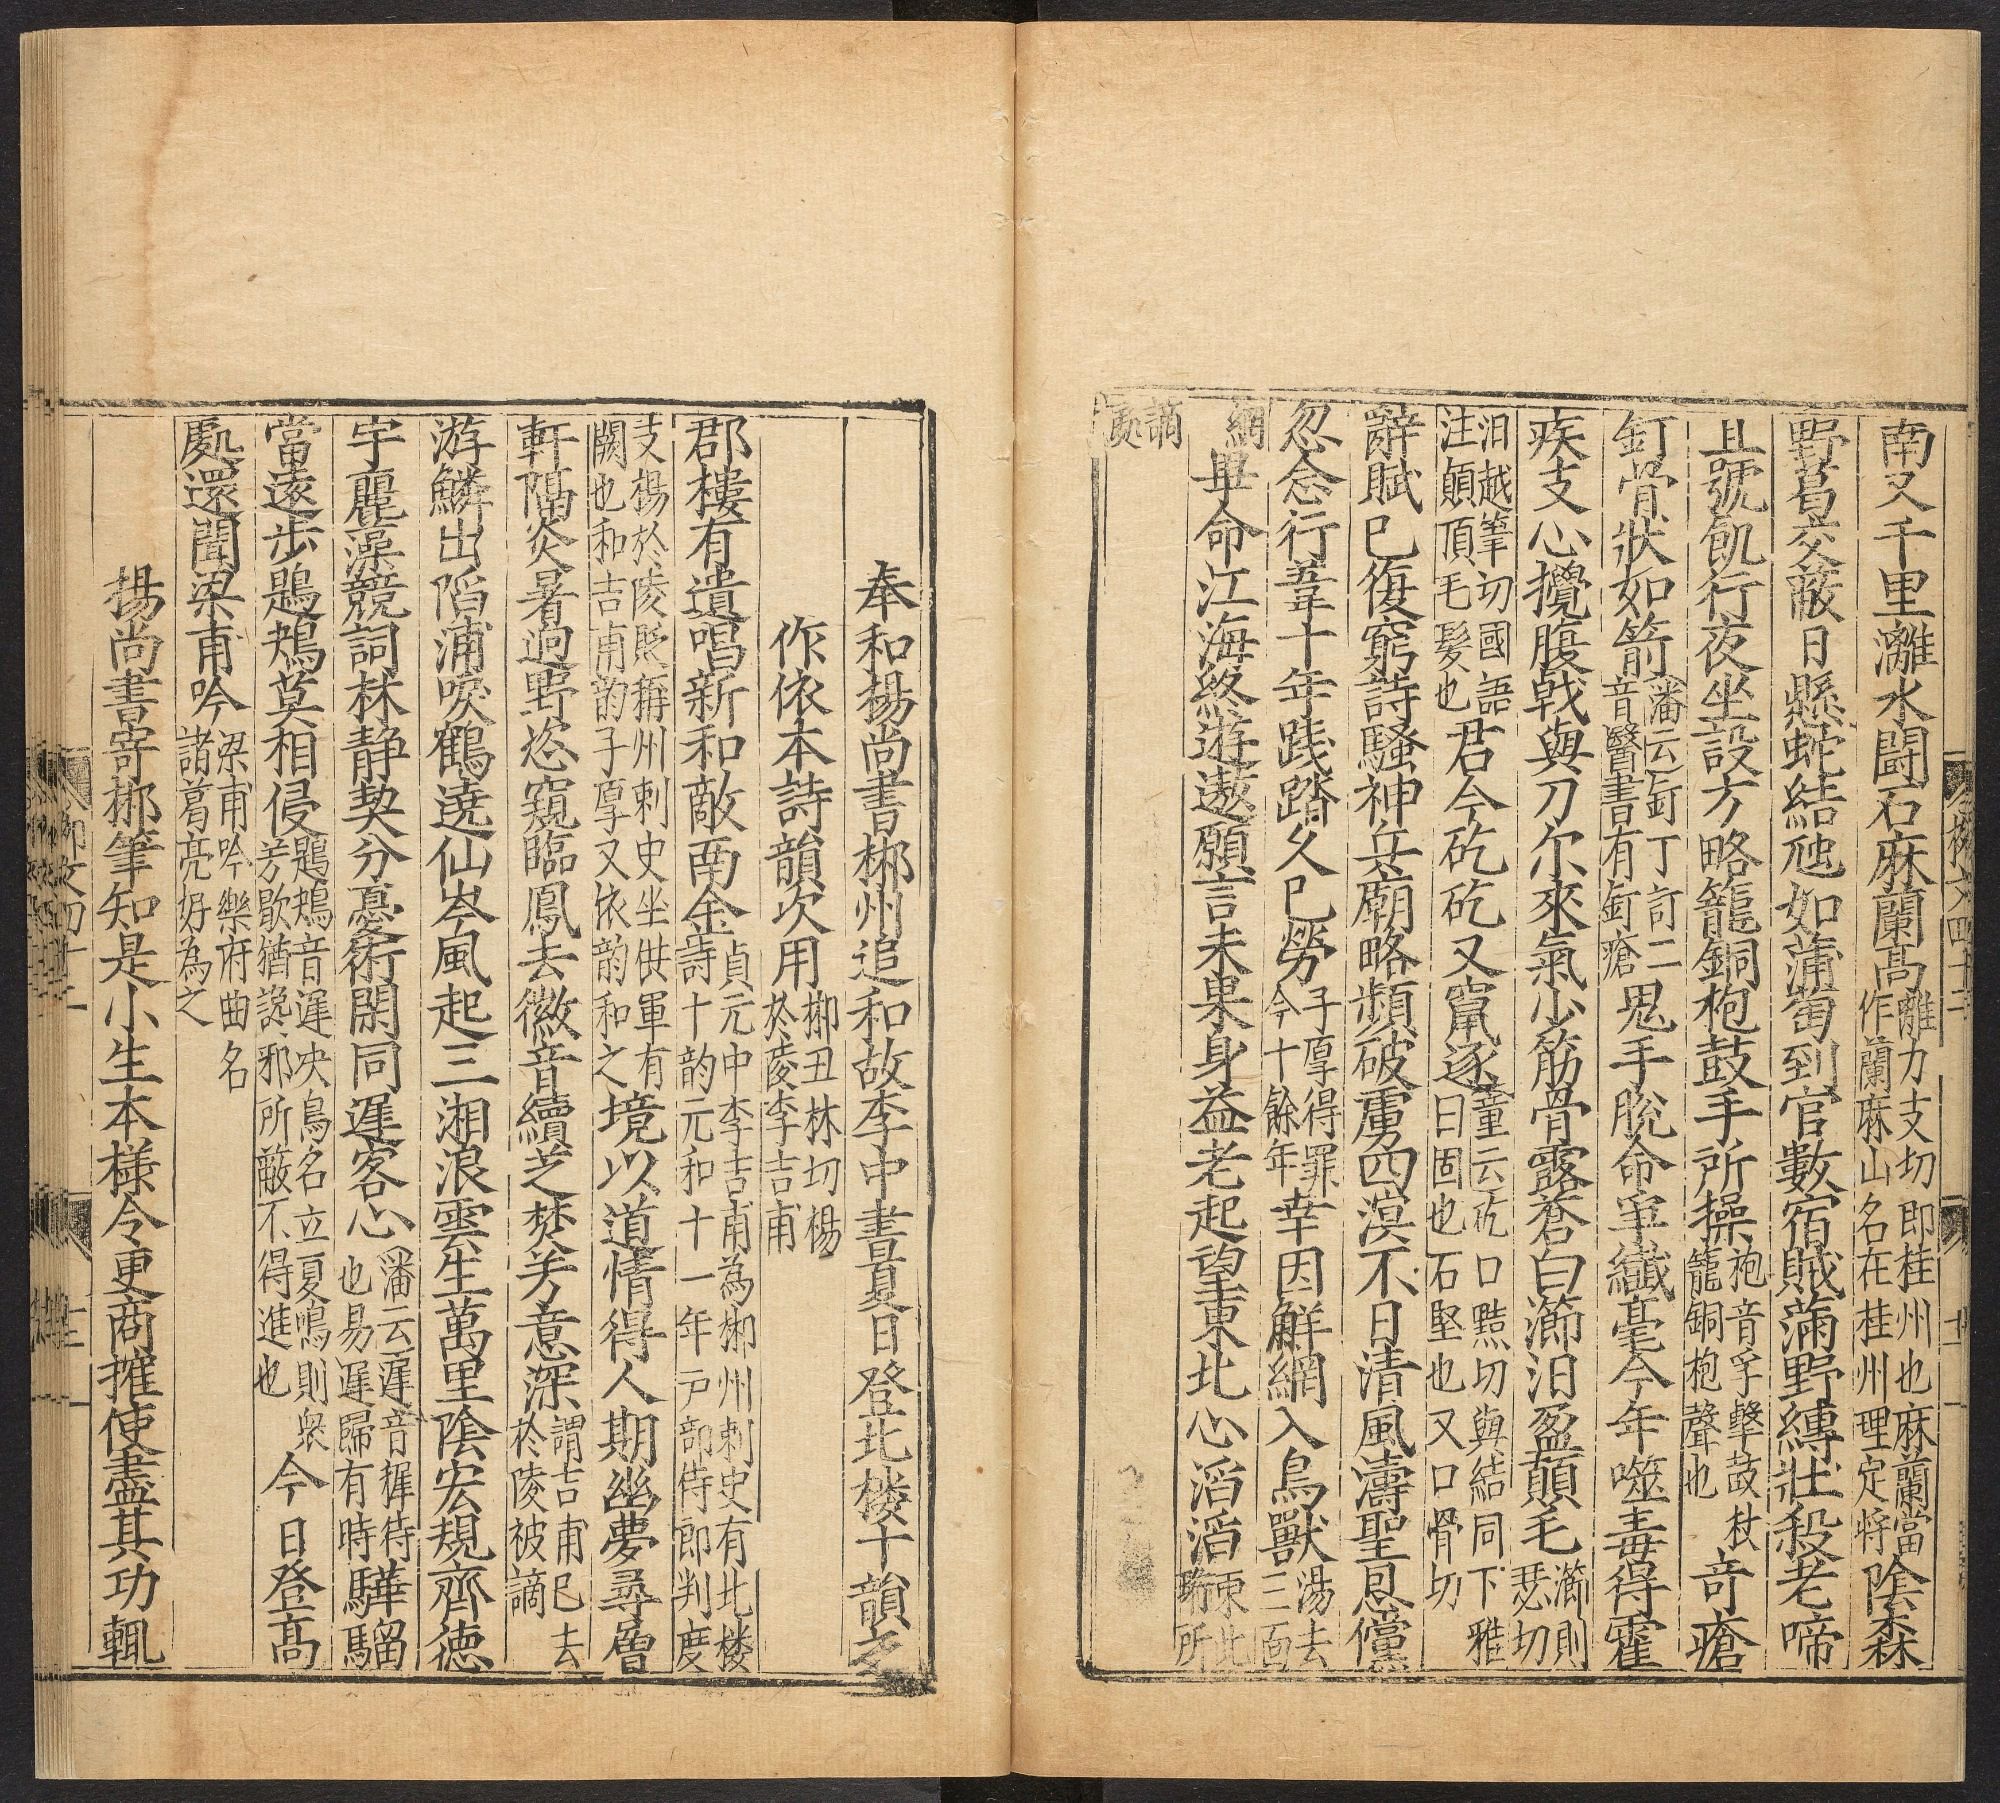 南又千里灕水鬪石麻蘭高離力支切即桂州也麻蘭當作蘭麻山名在桂州理定將陰森
野葛交蔽日懸虵結虺如蒲萄到官數宿賊滿野縛壯殺老啼
且號飢行夜坐設方略籠銅枹鼓手所操枹音孚擊鼓杖籠銅枹聲也竒瘡
釘骨狀如箭潘云釘丁訂二音醫書有釘瘡鬼手脫命爭纖毫今年噬毒得霍
疾支心攪腹戟與刀尔來氣少筋骨露蒼白㵧汨盈顛毛㵧則瑟切
汨越筆切國語注顛頂毛髮也君今矻矻又竄逐童云矻口黠切與結同下雅曰固也石堅也又口骨切
辭賦已復窮詩騷神兵廟略頻破虜四溟不日清風濤聖恩儻
忽念行葦十年踐踏久已勞子厚得罪今十餘年幸因觧網入鳥獸湯去三面
網畢命江海終遊遨願言未果身益老起望東北心滔滔東北所
謫處
奉和楊尚書郴州追和故李中書夏日登北楼十韻之
作依本詩韻次用郴丑林切楊於陵李吉甫
郡樓有遺唱新和敵南金貞元中李吉甫為郴州刺史有北楼詩十韵元和十一年戶部侍郎判度
支楊於陵貶郴州刺史坐供軍有闕也和吉甫韵子厚又依韵和之境以道情得人期幽夢尋層
軒隔炎暑迥野恣窺臨鳳去徽音續芝焚芳意深謂吉甫已去於陵被謫
游鱗出陷浦唳鶴遶仙岑風起三湘浪雲生萬里陰宏規齊德
宇麗藻競詞林静契分憂術閑同遲客心潘云遲音墀待也易遲歸有時驊騮
當遠步鶗鴂莫相侵鶗鴂音遲央鳥名立夏鳴則衆芳歇猶讒邪所蔽不得進也今日登高
處還聞梁甫吟梁甫吟樂府曲名諸葛亮好為之
楊尚書寄郴筆知是小生本樣令更商搉使盡其功輒